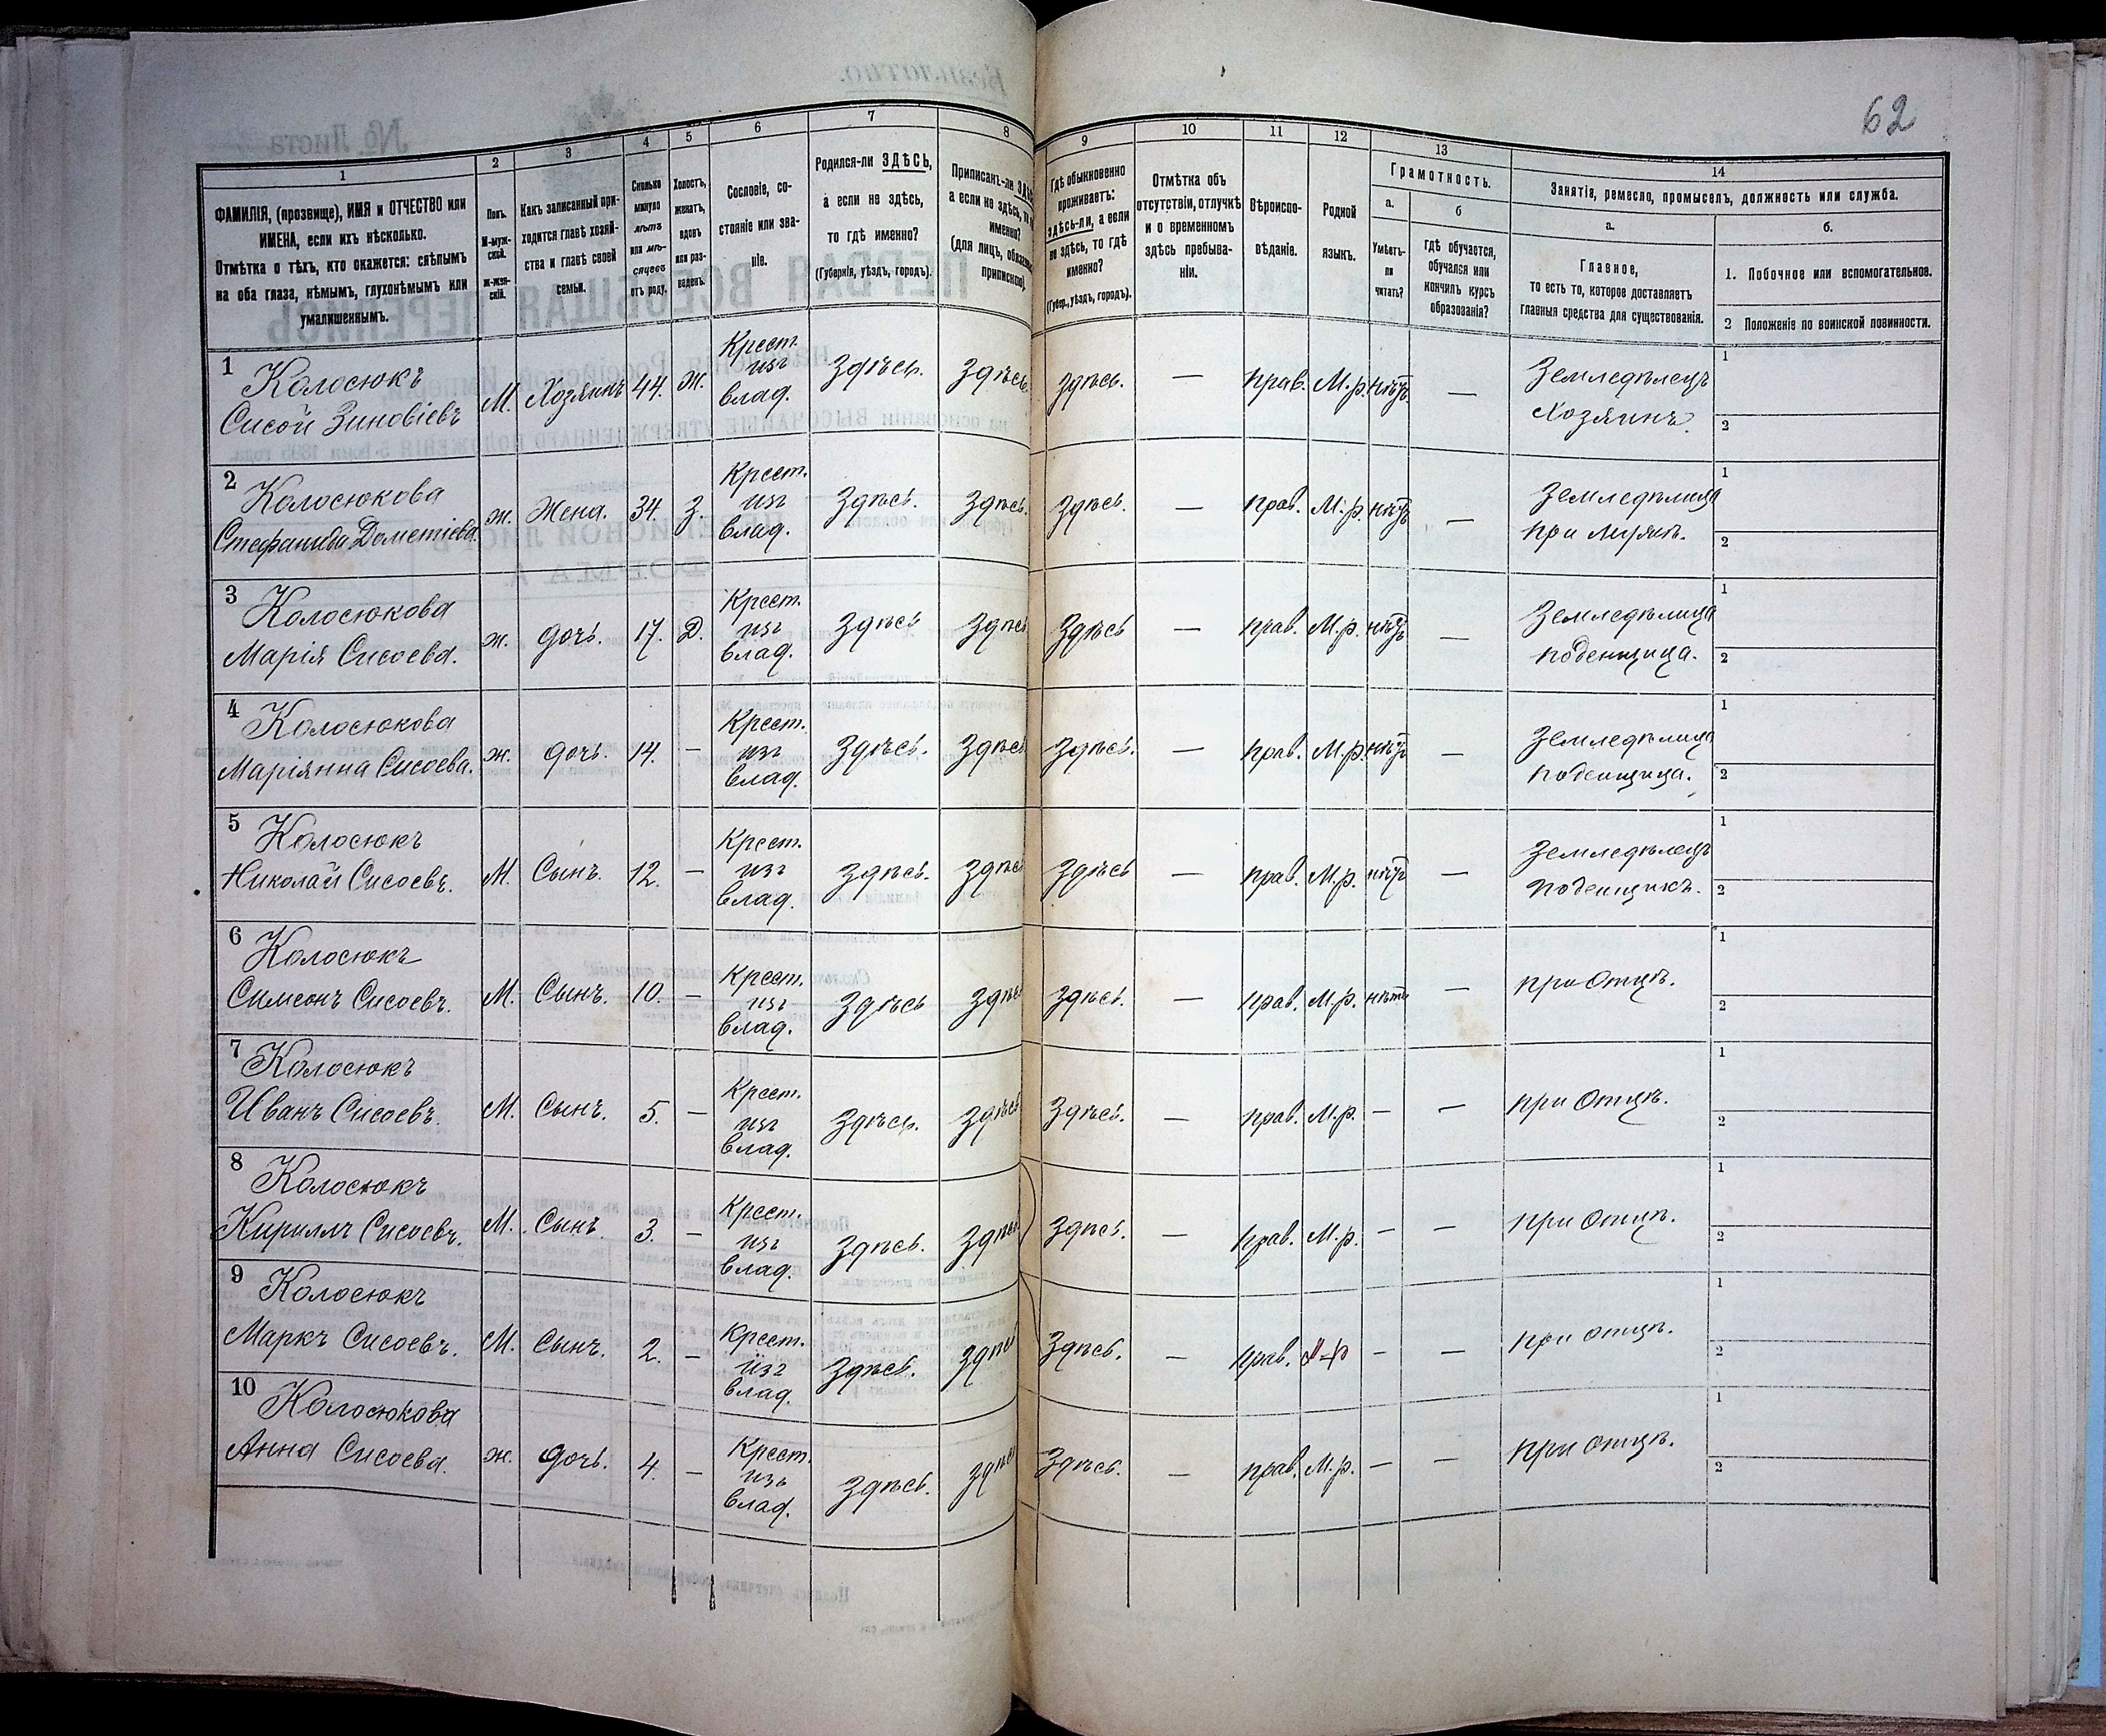 62
1 2 3 4 5 6 7 8 9 10 11 12 13 14
ФАМИЛІЯ, (прозвище), ИМЯ и ОТЧЕСТВО или
ИМЕНА, если ихъ нѣсколько.
Отмѣтка о тѣхъ, кто окажется: слѣпымъ
на оба глаза, нѣмымъ, глухонѣмымъ или
умалишеннымъ.
Полъ.
М-муж-
ской.
ж-жен-
скій.
Какъ записанный при-
ходится главѣ хозяй-
ства и главѣ своей
семьи.
Сколько
минуло
лѣтъ
или мѣ-
сяцевъ
отъ роду.
Холостъ,
женатъ,
вдовъ
или раз-
веденъ.
Сословіе, со-
стояніе или зва-
ніе.
Родился-ли ЗДѢСЬ,
а если не здѣсь,
то гдѣ именно?
(Губернія, уѣздъ, городъ).
Приписанъ-ли
а если не здѣсь,
именно?
(для лицъ,
припискою).
Гдѣ обыкновенно
проживаетъ:
здѣсь-ли, а если
не здѣсь, то гдѣ
именно?
(Губер., уѣздъ, городъ).
Отмѣтка объ
отсутствіи, отлучкѣ
и о временномъ
здѣсь пребыва-
ніи.
Вѣроиспо-
вѣданіе.
Родной
языкъ.
Грамотность.
а.
Умѣетъ-
ли
читать?
б
гдѣ обучается,
обучался или
кончилъ курсъ
образованія?
Занятія, ремесло, промыселъ, должность или служба.
а.
Главное,
то есть то, которое доставляетъ
главныя средства для существованія.
б.
1. Побочное или вспомогательное.
2 Положеніе по воинской повинности.
1 Колосюкъ
Сисой Зиновіевъ М. Хозяинъ 44. ж. Крест. изъ влад. Здѣсь. Здѣсь. Здѣсь. — прав. М.р. нѣтъ — Земледѣлецъ
Хозяинъ.
1
2
2 Колосюкова
Стефанида Дометіева. ж. Жена. 34. З. Крест. изъ влад. Здѣсь. Здѣсь. Здѣсь. — прав. М.р. нѣтъ — Земледѣлица
при мужѣ.
1
2
3 Колосюкова
Марія Сисоева. ж. дочь. 17. Д. Крест. изъ влад. Здѣсь Здѣсь Здѣсь — прав. М.р. нѣтъ — Земледѣлица
поденщица.
1
2
4 Колосюкова
Маріянна Сисоева. ж. дочь. 14. — Крест. изъ влад. Здѣсь. Здѣсь Здѣсь. — прав. М.р. нѣтъ — Земледѣлица
поденщица.
1
2
5 Колосюкъ
Николай Сисоевъ. М. Сынъ. 12. — Крест. изъ влад. Здѣсь. Здѣсь Здѣсь — прав. М.р. нѣтъ — Земледѣлецъ
поденщикъ.
1
2
6 Колосюкъ
Симеонъ Сисоевъ. М. Сынъ. 10. — Крест. изъ влад. Здѣсь Здѣсь Здѣсь. — прав. М.р. нѣтъ — при отцѣ.
1
2
7 Колосюкъ
Иванъ Сисоевъ. М. Сынъ. 5. — Крест. изъ влад. Здѣсь. Здѣсь Здѣсь. — прав. М.р. — — при отцѣ.
1
2
8 Колосюкъ
Кириллъ Сисоевъ. М. Сынъ 3. — Крест. изъ влад. Здѣсь. Здѣсь Здѣсь. — прав. М.р. — — при отцѣ.
1
2
9 Колосюкъ
Маркъ Сисоевъ. М. Сынъ. 2. — Крест. изъ влад. Здѣсь. Здѣсь Здѣсь. — прав. М.р — — при отцѣ.
1
2
10 Колосюкова
Анна Сисоева. ж. дочь. 4. — Крест. изъ влад. Здѣсь. Здѣсь Здѣсь. — прав. М.р. — — при отцѣ.
1
2